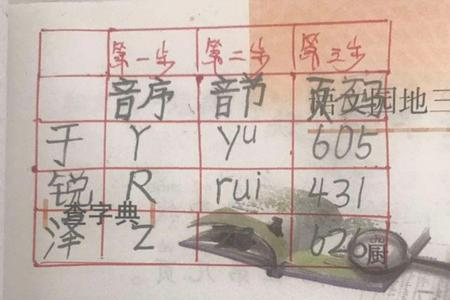 第一步 第二步 第三步
音序 音节 页码
语文园地三
于 Y yu 605
锐 R rui 431
查字典
泽 Z